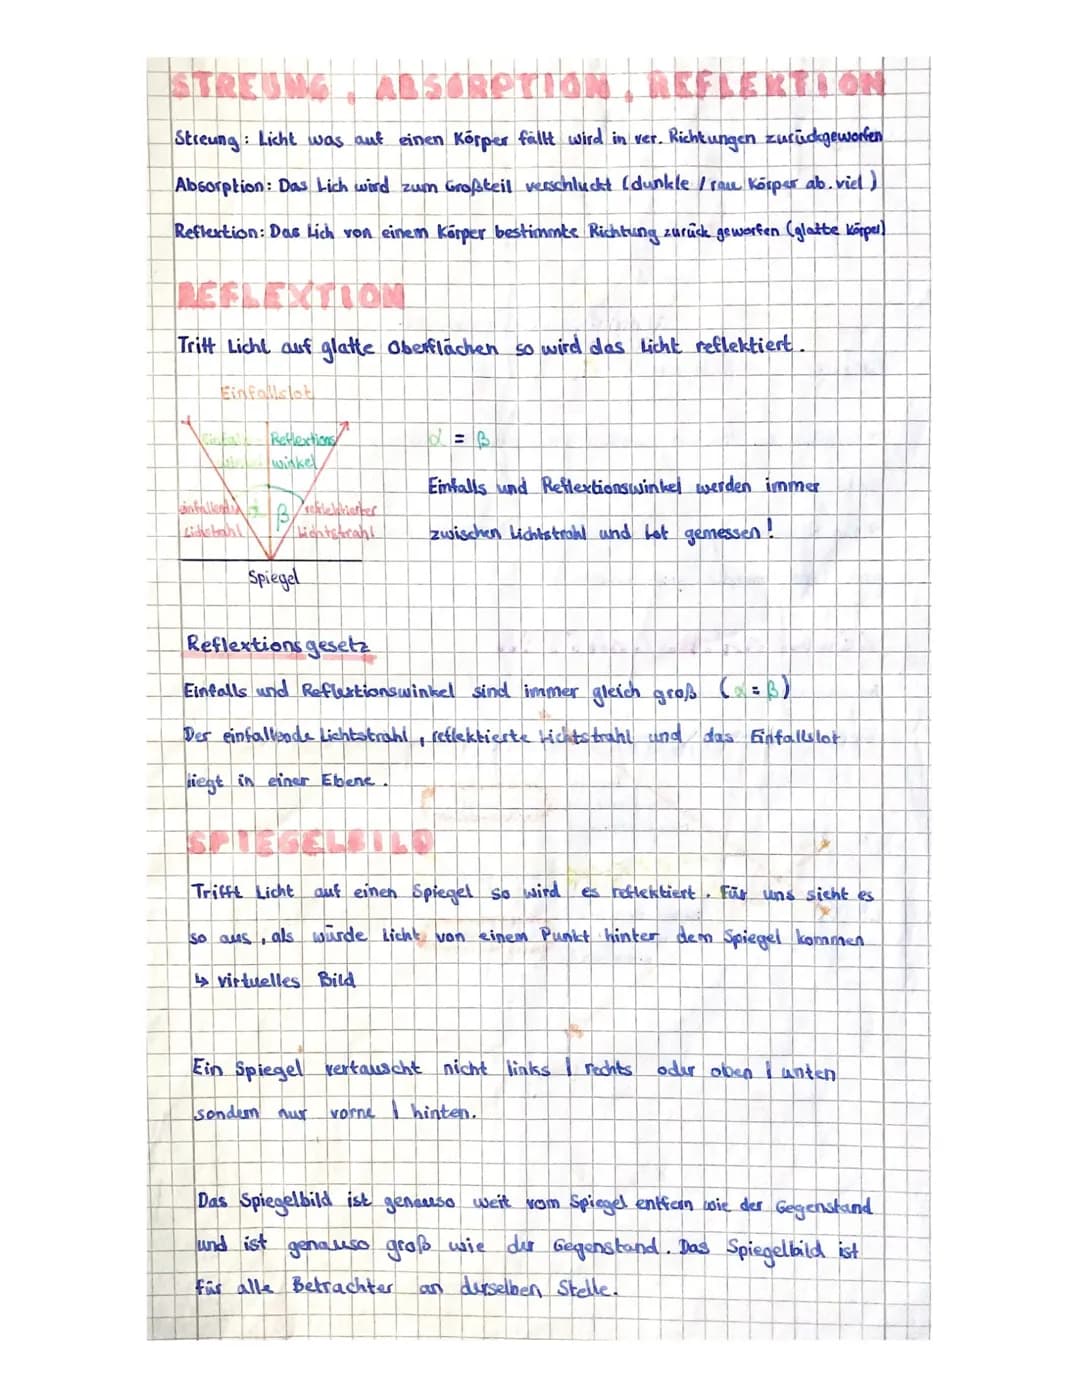 STREUNG, ABSORPTION, REFLEKTION
Streung: Licht was auf einen Körper fällt wird in ver. Richtungen zurückgeworfen
Absorption: Das Lich wird zum Großteil verschluckt (dunkle / rau Körper ab. viel)
Reflextion: Das Lich von einem Körper bestimmte Richtung zurück geworfen (glatte Körper)
REFLEXTION
Tritt Licht auf glatte Oberflächen so wird das Licht reflektiert.
Einfallslot
Einfalls Reflextions
winkel winkel
α = β
Einfalls und Reflextionswinkel werden immer
einfallende α β reflektierter
Lichtstrahl Lichtstrahl
zwischen Lichtstrahl und Lot gemessen!
Spiegel
Reflextionsgesetz
Einfalls und Reflextionswinkel sind immer gleich groß (α = β)
Der einfallende Lichtstrahl, reflektierte Lichtstrahl und das Einfallslot
liegt in einer Ebene.
SPIEGELBILD
Trifft Licht auf einen Spiegel so wird es reflektiert. Für uns sieht es
so aus, als würde Licht von einem Punkt hinter dem Spiegel kommen
↳ virtuelles Bild
Ein Spiegel vertauscht nicht links | rechts oder oben | unten
sondern nur vorne | hinten.
Das Spiegelbild ist genauso weit vom Spiegel entfern wie der Gegenstand
und ist genauso groß wie der Gegenstand. Das Spiegelbild ist
für alle Betrachter an derselben Stelle.